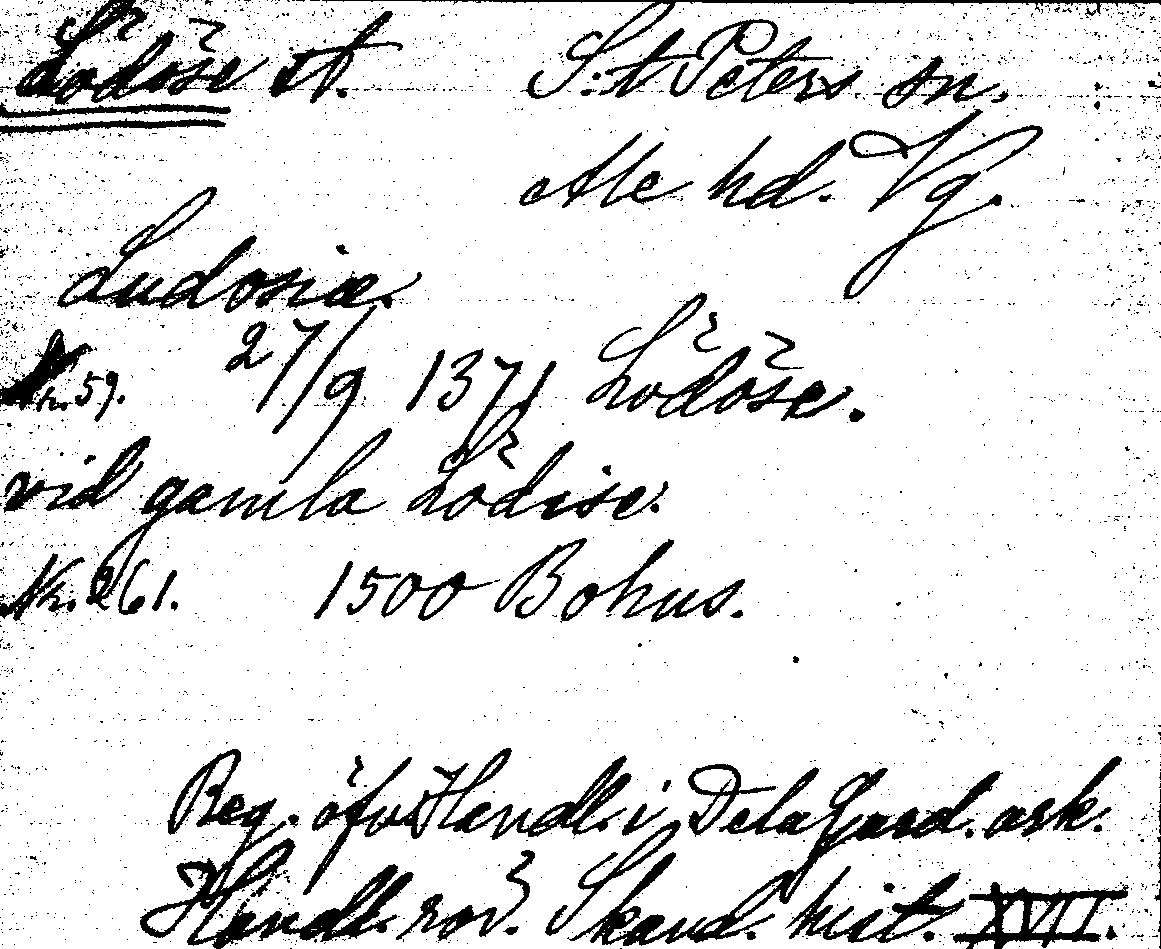 Lödöse st. S:t Peters sn.
Ale hd. Vg.
Ludosiæ.
Nr. 59. 27/9 1371 Lödöse.
vid gamla Lödise.
Nr. 261. 1500 Bohus.
Reg. öfver Handl. i De la Gard. ark.
Handl. rör. Skand. hist. XVII.